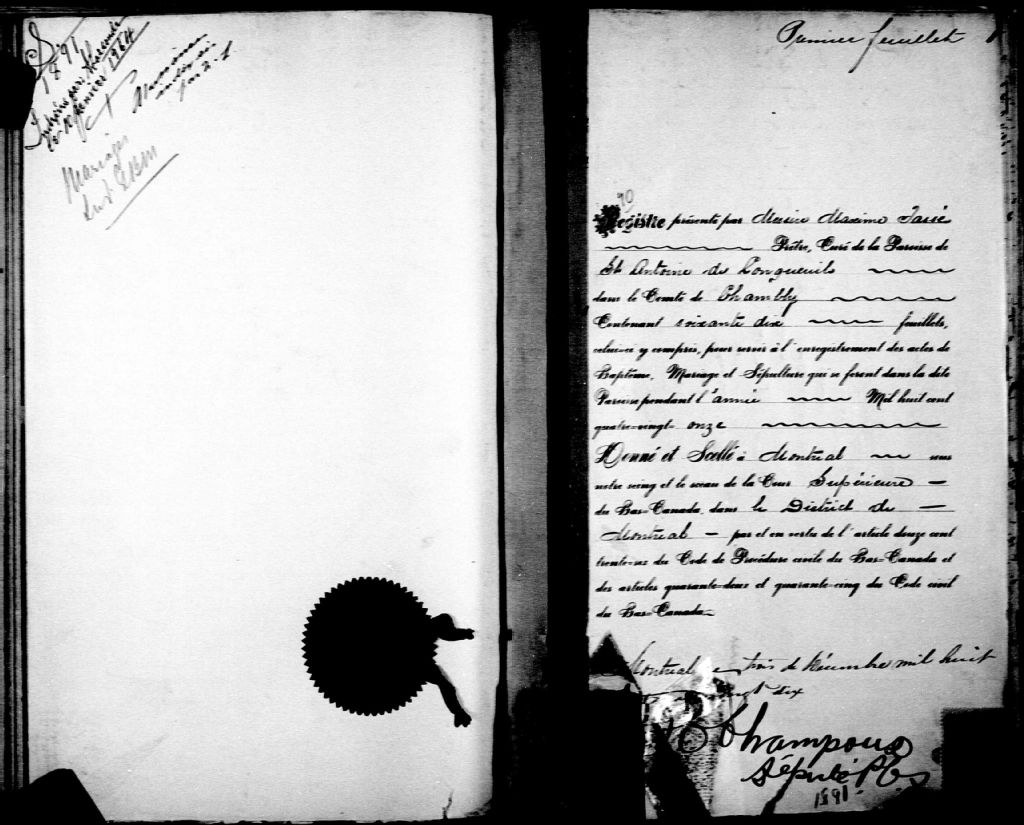 1891
Mariages
Premier feuillet
70
Registre présenté par Messire Maxime Tassé
Prêtre, Curé de la Paroisse de
St Antoine de Longueuils
dans le Comté de Chambly
Contenant soixante dix feuillets,
celui-ci y compris, pour servir à l'enregistrement des actes de
Baptême, Mariage et Sépulture qui se feront dans la dite
Paroisse pendant l'année Mil huit cent
quatre-vingt onze
Donné et Scellé à Montréal sous
notre seing et le sceau de la Cour Supérieure
du Bas-Canada, dans le District de
Montréal par et en vertu de l'article douze cent
trente-six du Code de Procédure civile du Bas-Canada et
des articles quarante-deux et quarante-cinq du Code civil
du Bas-Canada
Montréal ce trois de décembre mil huit
vingt dix
Champoux
Député P
1891